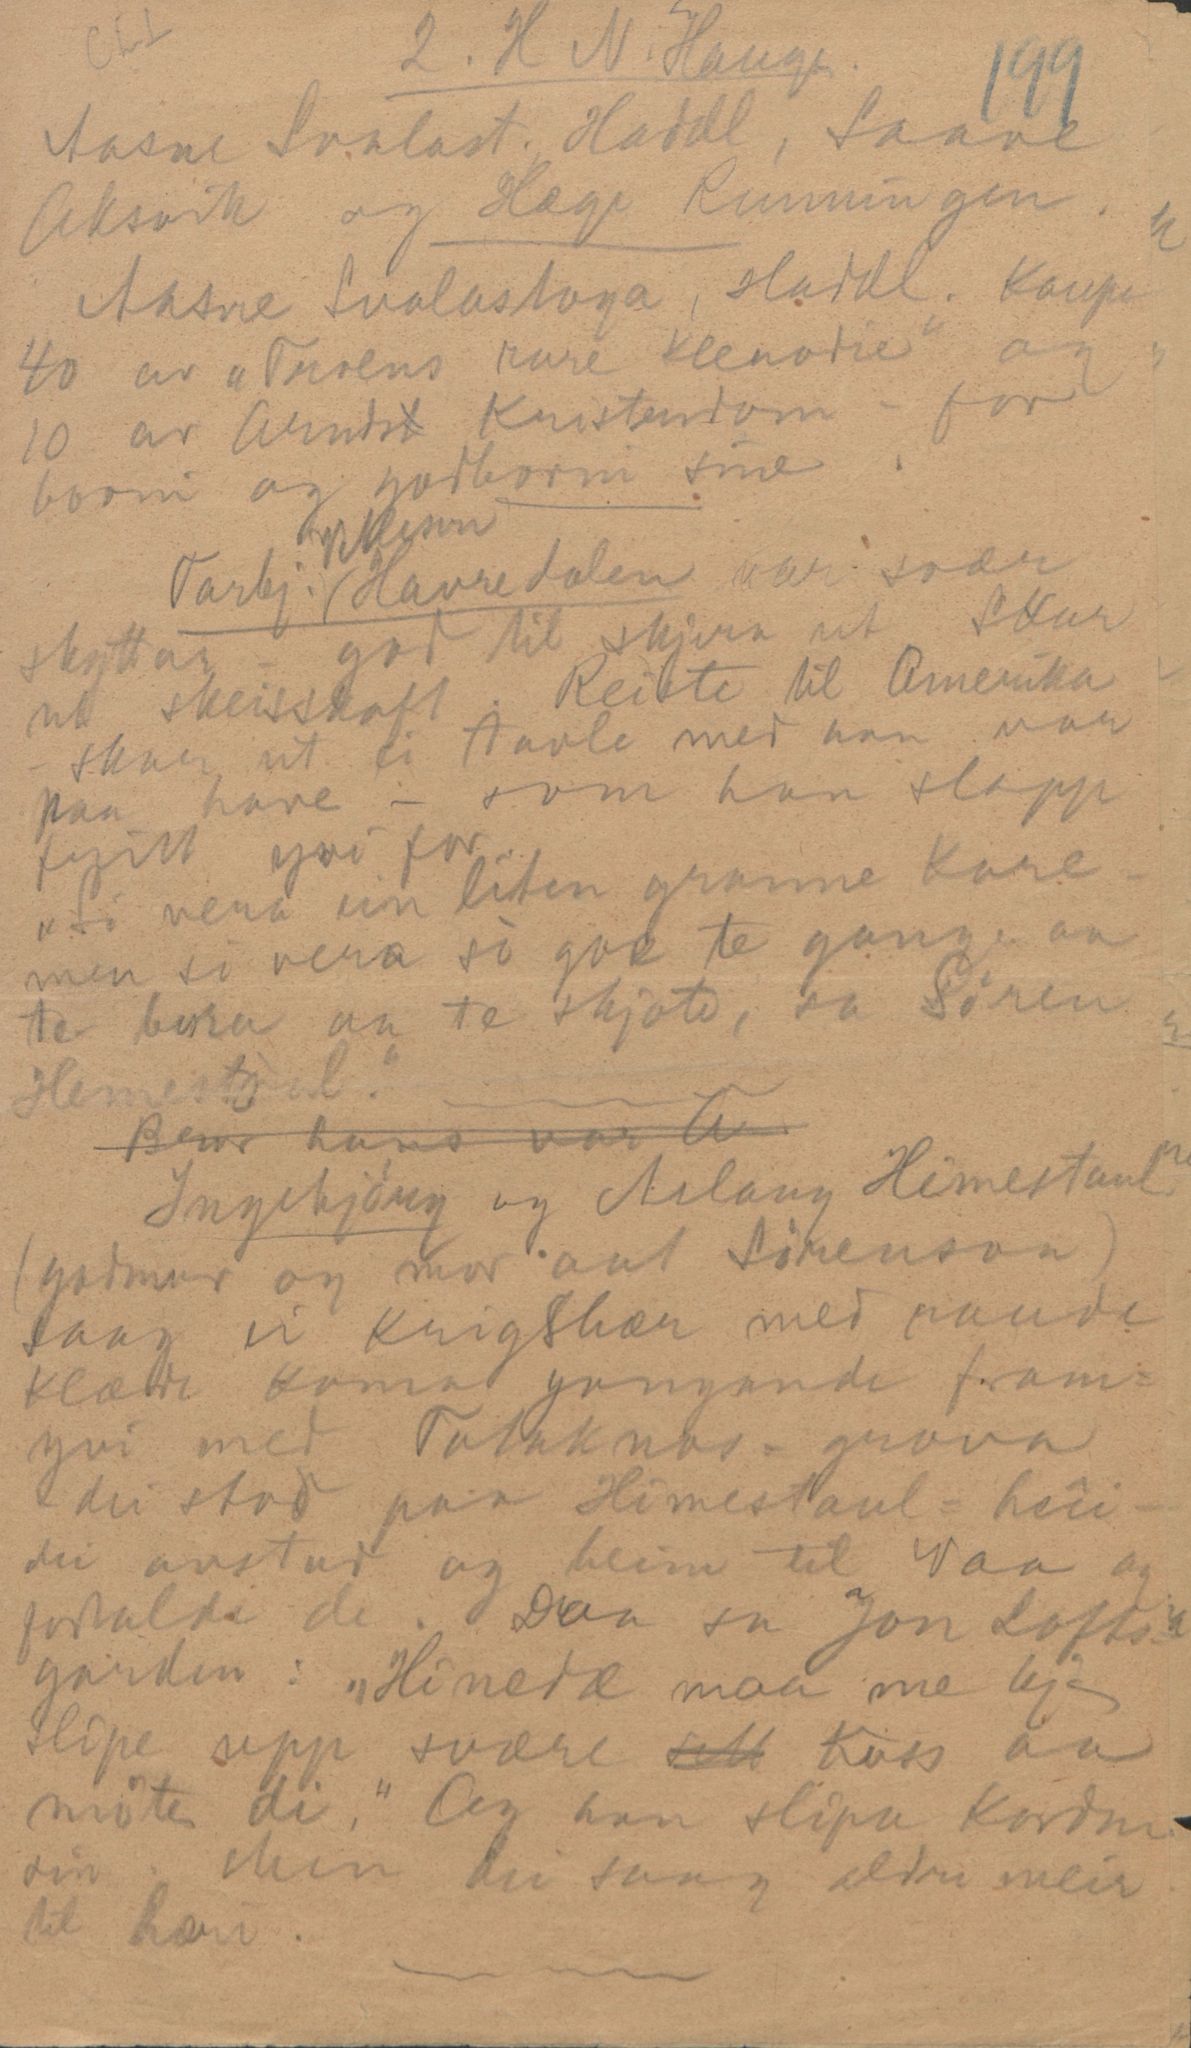 2. H N. Hauge.
199
Aasne Svalast. Haddl, Saave
Aksvik og Hæge Runningen.
Aasne Svalastoga, Haddl. Kaupe
40 av "Troens rare Klenodie" og
10 av Arndt Kristendom - for
borni og godborni sine.
Tarbj. Havredalen var svær
skyttar - god til skjera ut. Skar
ut skeisskaft. Reiste til Amerika
- skar ut ei tavle med han var
paa have - som han slapp
fritt yvi for.
"Si vera ein liten granne Kare -
men si vera so goe te gange aa
te bera aa te skjote, sa Sören
Hemestöul."
Beno hans var A
Ingebjörg og Aslaug Himestaul
(godmor og mor aat Sörenson)
saag ei Krigshær med raude
klæde koma gangande fram=
yvi med Tabaknos-grova
dei stod paa Himestaul-heii-
dei avstad og heim til Vaa og
fortalde de. Daa sa Jon Lofts-
garden: "Hinedæ maa me
slipe upp svære Koss aa
möte di." Og han slipa Korden
sin. Men dei saag aldri meir
til hæri.